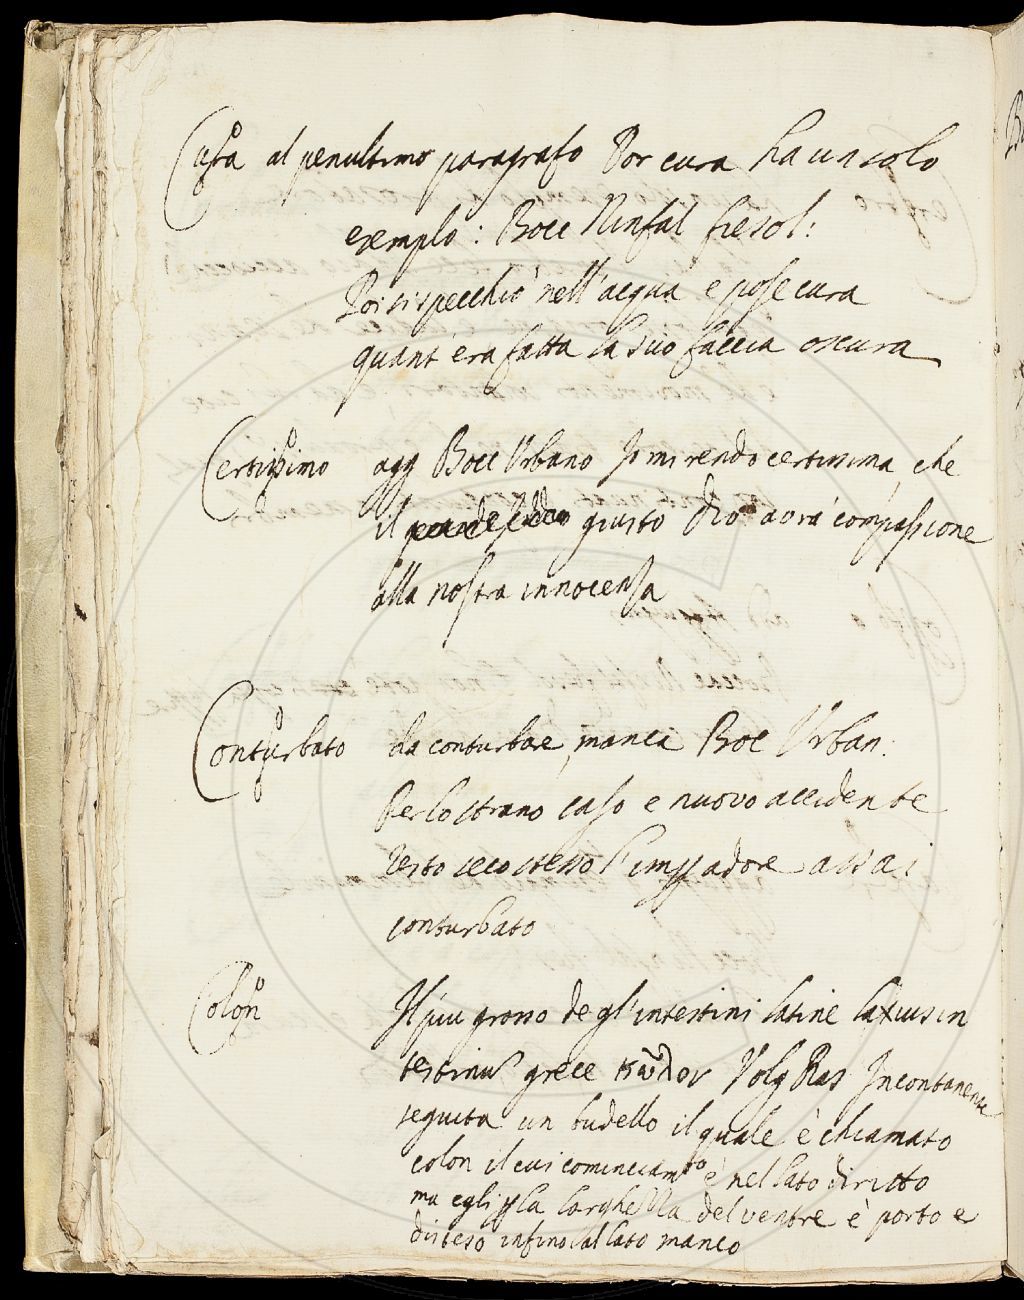 Cura al penultimo paragrafo Por cura ha un solo
esemplo: Bocc Ninfal fiesol:
Poi si specchiò nell'acqua e pose cura
quant'era fatta la suo faccia oscura
Certissimo agg Bocc Urbano Io mi rendo certissima, che
il giusto Dio avrà compassione
alla nostra innocensa
Conturbato da conturbare, manca Boc Urban:
Per lo strano caso e nuovo accidente
resto seco stesso l'impadore assai
conturbato
Colon Il piu grosso degl'intestini latine laxius in
testinu grece κῶλον Volg Ras Incontanente
seguita un budello il quale è chiamato
colon il cui cominciamto è nel lato diritto
ma egli p la larghezza del ventre è porto e
disteso infino al lato manco